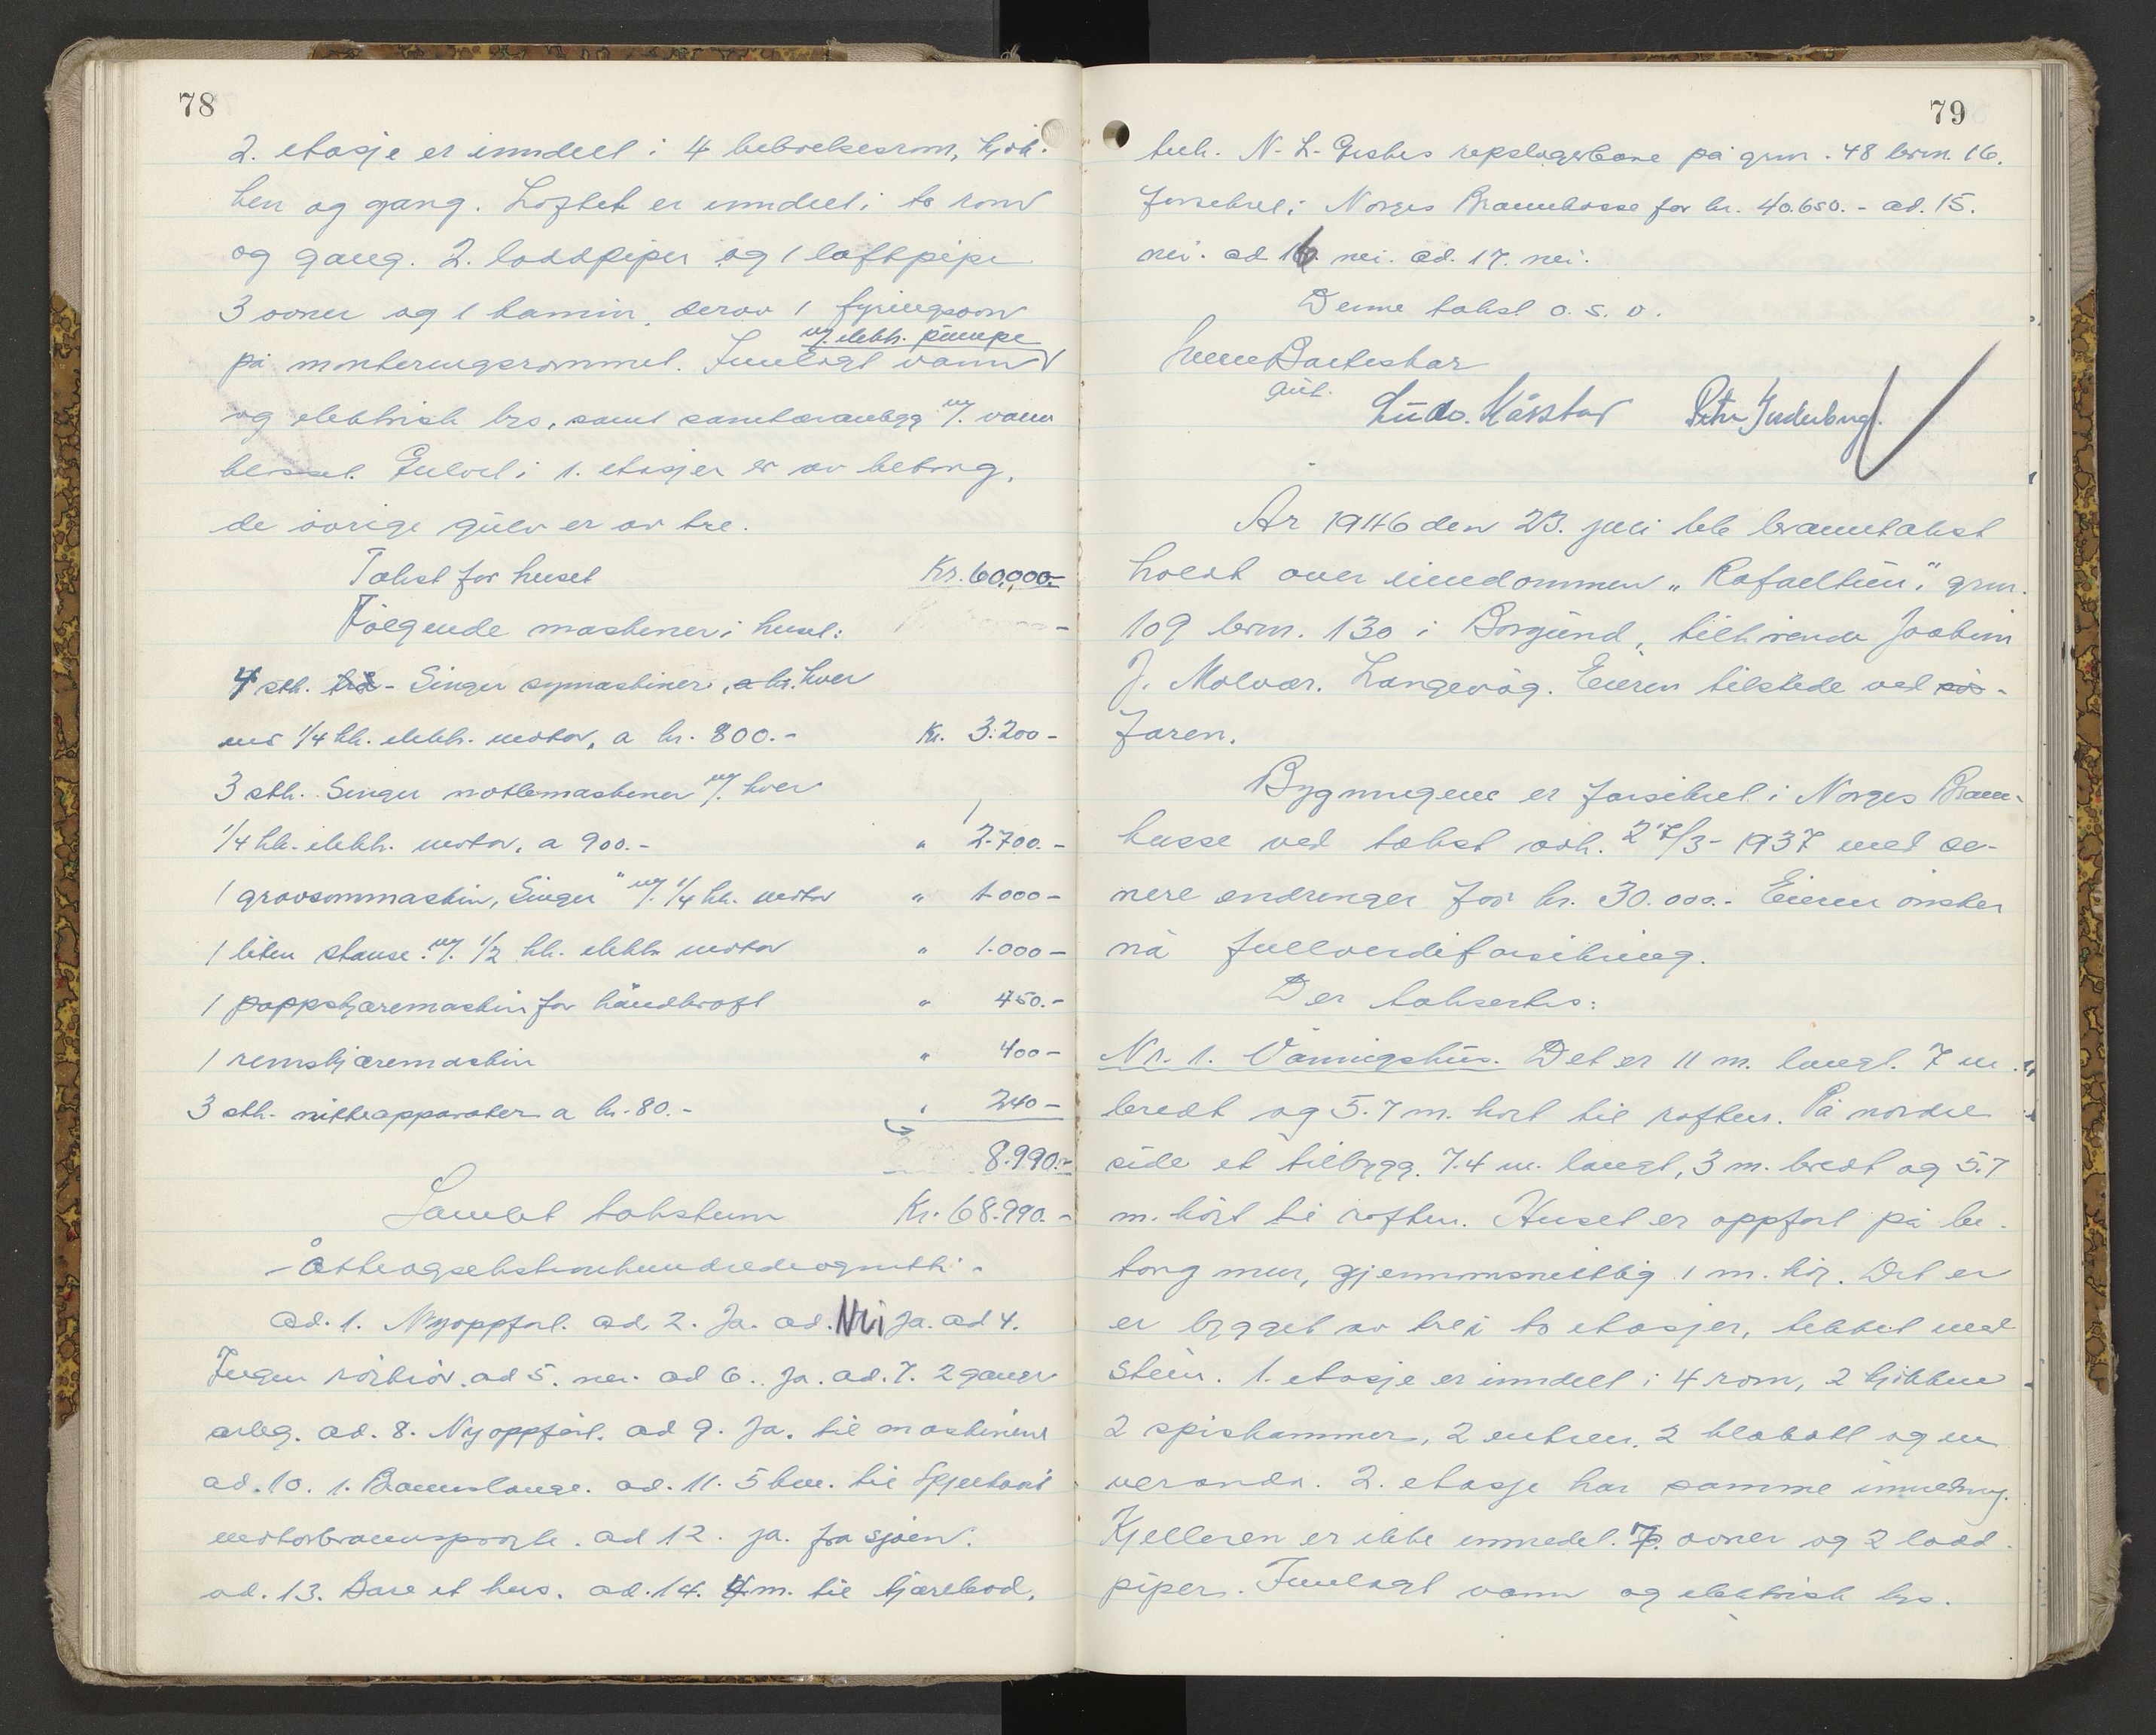 78
2. etasje er inndelt i 4 beboelsesrom, kjök-
ken og gang. Loftet er inndelt i to rom
og gang. 2. loddpiper og 1 loftpipe
3 ovner og 1 kamin, derav 1 fyringsovn
m/. elektr. pumpe
på monteringsrommet. Innlagt vann
og elektrisk lys, samt sanitæranlegg m/. vann
klosset. Gulvet i 1. etasjer er av betong,
de övrige gulv er av tre.
Takst for huset Kr. 60.000.-
Fölgende maskiner i huset:
4 stk. Singer symaskiner, hver
med 1/4 hk. elektr. motor, a kr. 800.- Kr. 3.200-
3 stk. Singer nåtlemaskiner m/. hver
1/4 hk. elektr. motor, a 900.- " 2.700.-
1 grovsommaskin, "Singer" m/. 1/4 hk. motor " 1.000-
1 liten stanse m/. 1/2 hk. elektr. motor " 1.000-
1 pappskjæremaskin for håndkraft " 450.-
1 remskjæremaskin " 400-
3 stk. nitteapparater a kr. 80.- " 240-
8.990.-
Samlet takstsum Kr. 68.990.-
- åtteogsekstinihundredeognitti -
ad. 1. Nyoppfört. ad. 2. Ja. ad. Nei Ja. ad 4.
Ingen ad 5. nei. ad 6. Ja. ad. 7. 2 ganger
årleg. ad. 8. Nyoppfört. ad 9. Ja. til maskinene
ad. 10. 1. Brannslange. ad. 11. 5 km. til Spjelkavik
motorbrannspröyte. ad 12. ja. fra sjöen.
ad. 13. Bare et hus. ad. 14. 4 m. til tjærebod,
79
tilh. N. L. Gjesdes repslagerbane på grnr. 48 brnr. 16.
forsikret i Norges Brannkasse for kr. 40.650.- ad. 15.
nei. ad 16. nei. ad. 17. nei.
Denne takst o. s. v.
Ludv. Kårstad Petr
År 1946 den 23. juli ble branntakst
holdt over eiendommen "Rafaeltun", grnr.
109 brnr. 130 i Borgund, tilhörende Joakim
J. Molvær. Langevåg. Eieren tilstede ved
faren.
Bygningene er forsikret i Norges Brann-
kasse ved takst avh. 27/3- 1937 med se-
nere endringer for kr. 30.000.- Eieren önsker
nå fullverdiforsikring.
Der takseres:
Nr. 1. Våningshus. Det er 11 m. langt. 7 m.
bredt og 5.7 m. höit til raften. På nordre
side et tilbygg. 7.4 m. langt, 3 m. bredt og 5.7
m. höit til raften. Huset er oppfört på be-
tong mur, gjennomsnittlig 1 m. höi. Det er
er bygget av tre i to etasjer, tekket med
stein. 1. etasje er inndelt i 4 rom, 2 kjökken
2 spiskammers, 2 entreer, 2 klosett og en
veranda. 2. etasje har samme inndeling.
Kjelleren er ikke innredet. 7 ovner og 2 lodd
piper. Innlagt vann og elektrisk lys.